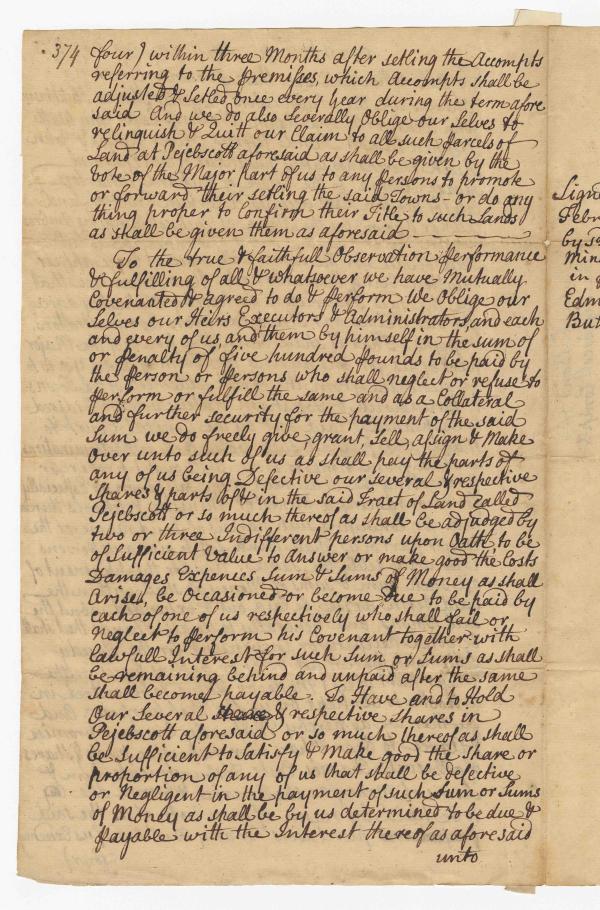 374 four) within three Months after setling the Accompts
referring to the Premisses, which Accompts shall be
adjusted & Setled once every year during the term afore
said And we do also Severally Oblige our Selves to
relinquish & Quitt our Claim to all such Parcels of
Land at Pejebscott aforesaid as shall be given by the
Vote of the Major part of us to any Persons to promote
or forward their setling the said Towns - or do any
thing proper to Confirm their Title to such Lands
as shall be given them as aforesaid
To the true & faithfull Observation Performance
& fulfilling of all & whatsoever we have Mutually
Covenanted & agreed to do & Perform We Oblige our
Selves our Heirs Executors & Administrators, and each
and every of us, and them by himself in the sum of
or Penalty of five hundred Pounds to be paid by
the Person or Persons who shall neglect or refuse to
Perform or fulfill the same and as a Collateral
and further security for the payment of the said
Sum we do freely give, grant, Sell, assign & Make
Over unto such of us as shall pay the parts of
any of us being Defective our several & respective
Shares & parts of & in the said Tract of Land called
Pejebscott or so much thereof as shall be adjudged by
two or three Indifferent persons upon Oath to be
of Sufficient Value to answer or make good the Costs
Damages Expences Sum & Sums of Money as shall
Arise, be Occasioned or become Due to be paid by
each of one of us respectively who shall fail or
Neglect to Perform his Covenant together with
lawfull Interest for such Sum or Sums as shall
be remaining behind and unpaid after the same
shall become payable. To Have and to Hold
Our Several & respective Shares in
Pejebscott aforesaid or so much thereof as shall
be Sufficient to Satisfy & Make good the share or
proportion of any of us that shall be defective
or Negligent in the payment of such Sum or Sums
of Money as shall be by us determined to be due &
Payable with the Interest thereof as aforesaid
unto
Sign
Febr
by
Min
in
Edm
But